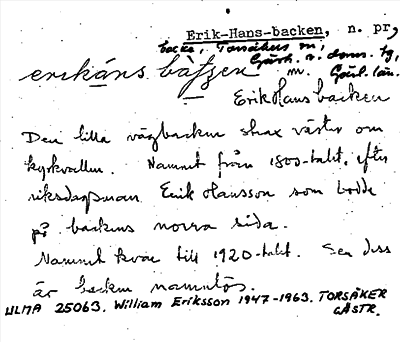 Erik-Hans-backen, n. pr,
backe, Torsåkers sn,
Gästr. ö. doms. hg,
erikáns bàtzen m. Gävl. län.
Erik Hans backen
Den lilla vägbacken strax väster om
kyrkvallen. Namnet från 1800-talet, efter
riksdagsman Erik Hansson som bodde
på backens norra sida.
Namnet kvar till 1920-talet. Sen dess
är backen namnlös.
ULMA 25063. William Eriksson 1947-1963. TORSÅKER
GÄSTR.